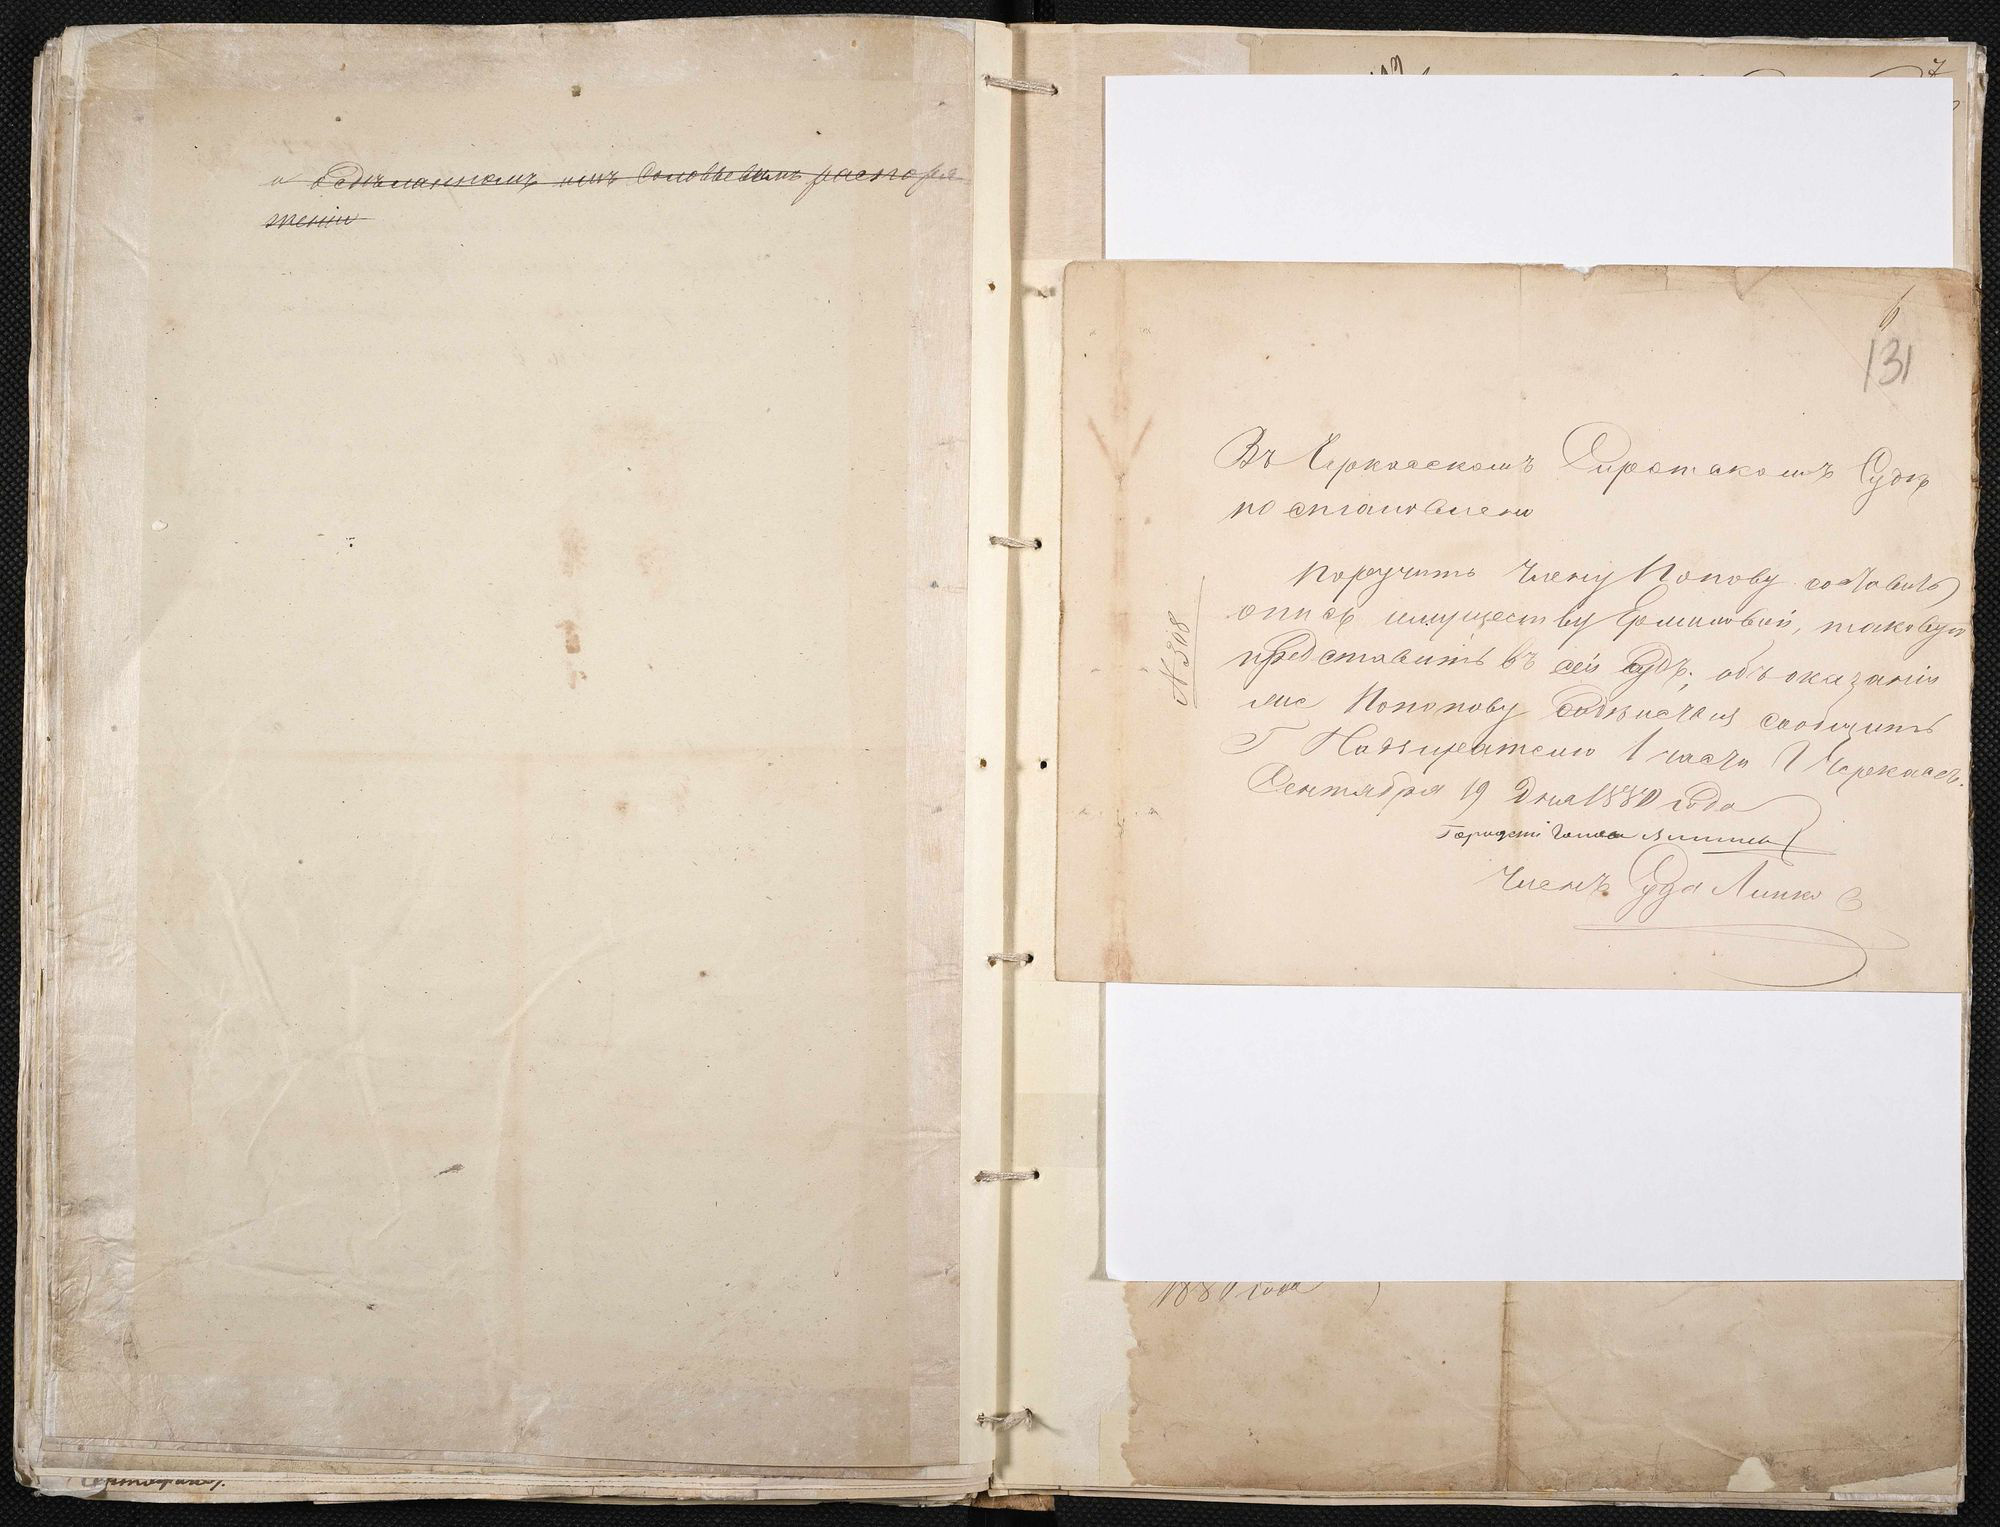 и о сдѣланномъ имъ Соловьевымъ распоря
женіи
7
6
131
Въ Черкасскомъ Сиротскомъ Судѣ
постановлено
Поручить Члену Попову составить
опись имуществу Ермиловой, таковую
представить въ сей Судъ; объ оказаніи
же Попову содѣйствія сообщить
Г Надзирателю 1 части Г Черкасъ.
Сентября 19 Дня 1880 года
Городской Голова
Членъ Суда Липко
№ 308
1880 года